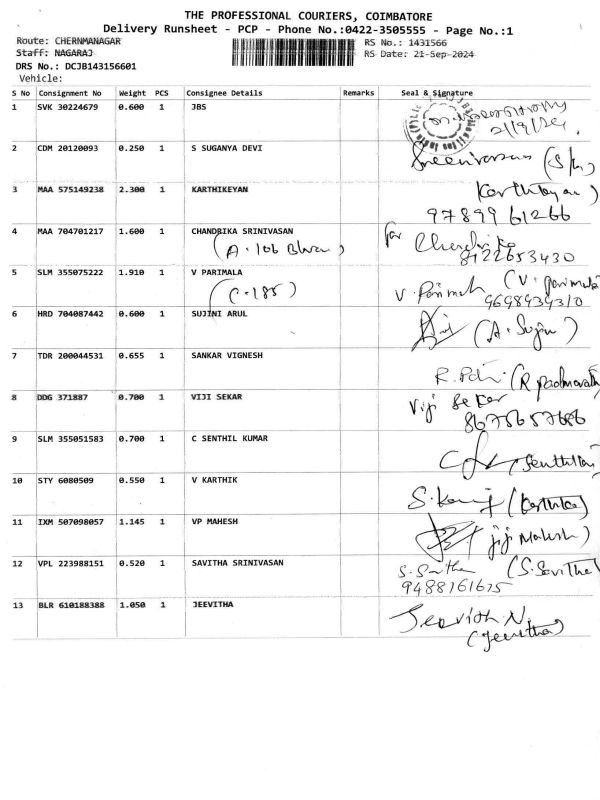 THE PROFESSIONAL COURIERS, COIMBATORE
Delivery Runsheet - PCP - Phone No.:0422-3505555 - Page No.:1
Route: CHERNMANAGAR RS No.: 1431566
Staff: NAGARAJ RS Date: 21-Sep-2024
DRS No.: DCJB143156601
Vehicle:
S No Consignment No Weight PCS Consignee Details Remarks Seal & Signature
1 SVK 30224679 0.600 1 JBS
2 CDM 20120093 0.250 1 S SUGANYA DEVI Sreenivasan
3 MAA 575149238 2.300 1 KARTHIKEYAN Karthikeyan)
97899 61266
4 MAA 704701217 1.600 1 CHANDRIKA SRINIVASAN for Chandrika
(A-106 ) 8122653430
5 SLM 355075222 1.910 1 V PARIMALA V. Parimala (V. parimala
(C-185) 9698939310
6 HRD 704087442 0.600 1 SUJINI ARUL (A. Sujini)
7 TDR 200044531 0.655 1 SANKAR VIGNESH R. (R padmavath
8 DDG 371887 0.700 1 VIJI SEKAR Viji Sekar
8675657686
9 SLM 355051583 0.700 1 C SENTHIL KUMAR
10 STY 6080509 0.550 1 V KARTHIK (Karthika)
11 IXM 507098057 1.145 1 VP MAHESH (jiji Mahesh)
12 VPL 223988151 0.520 1 SAVITHA SRINIVASAN S. Savitha (S. Savitha)
9488161615
13 BLR 610188388 1.050 1 JEEVITHA Jeevitha N.
(Jeevitha)